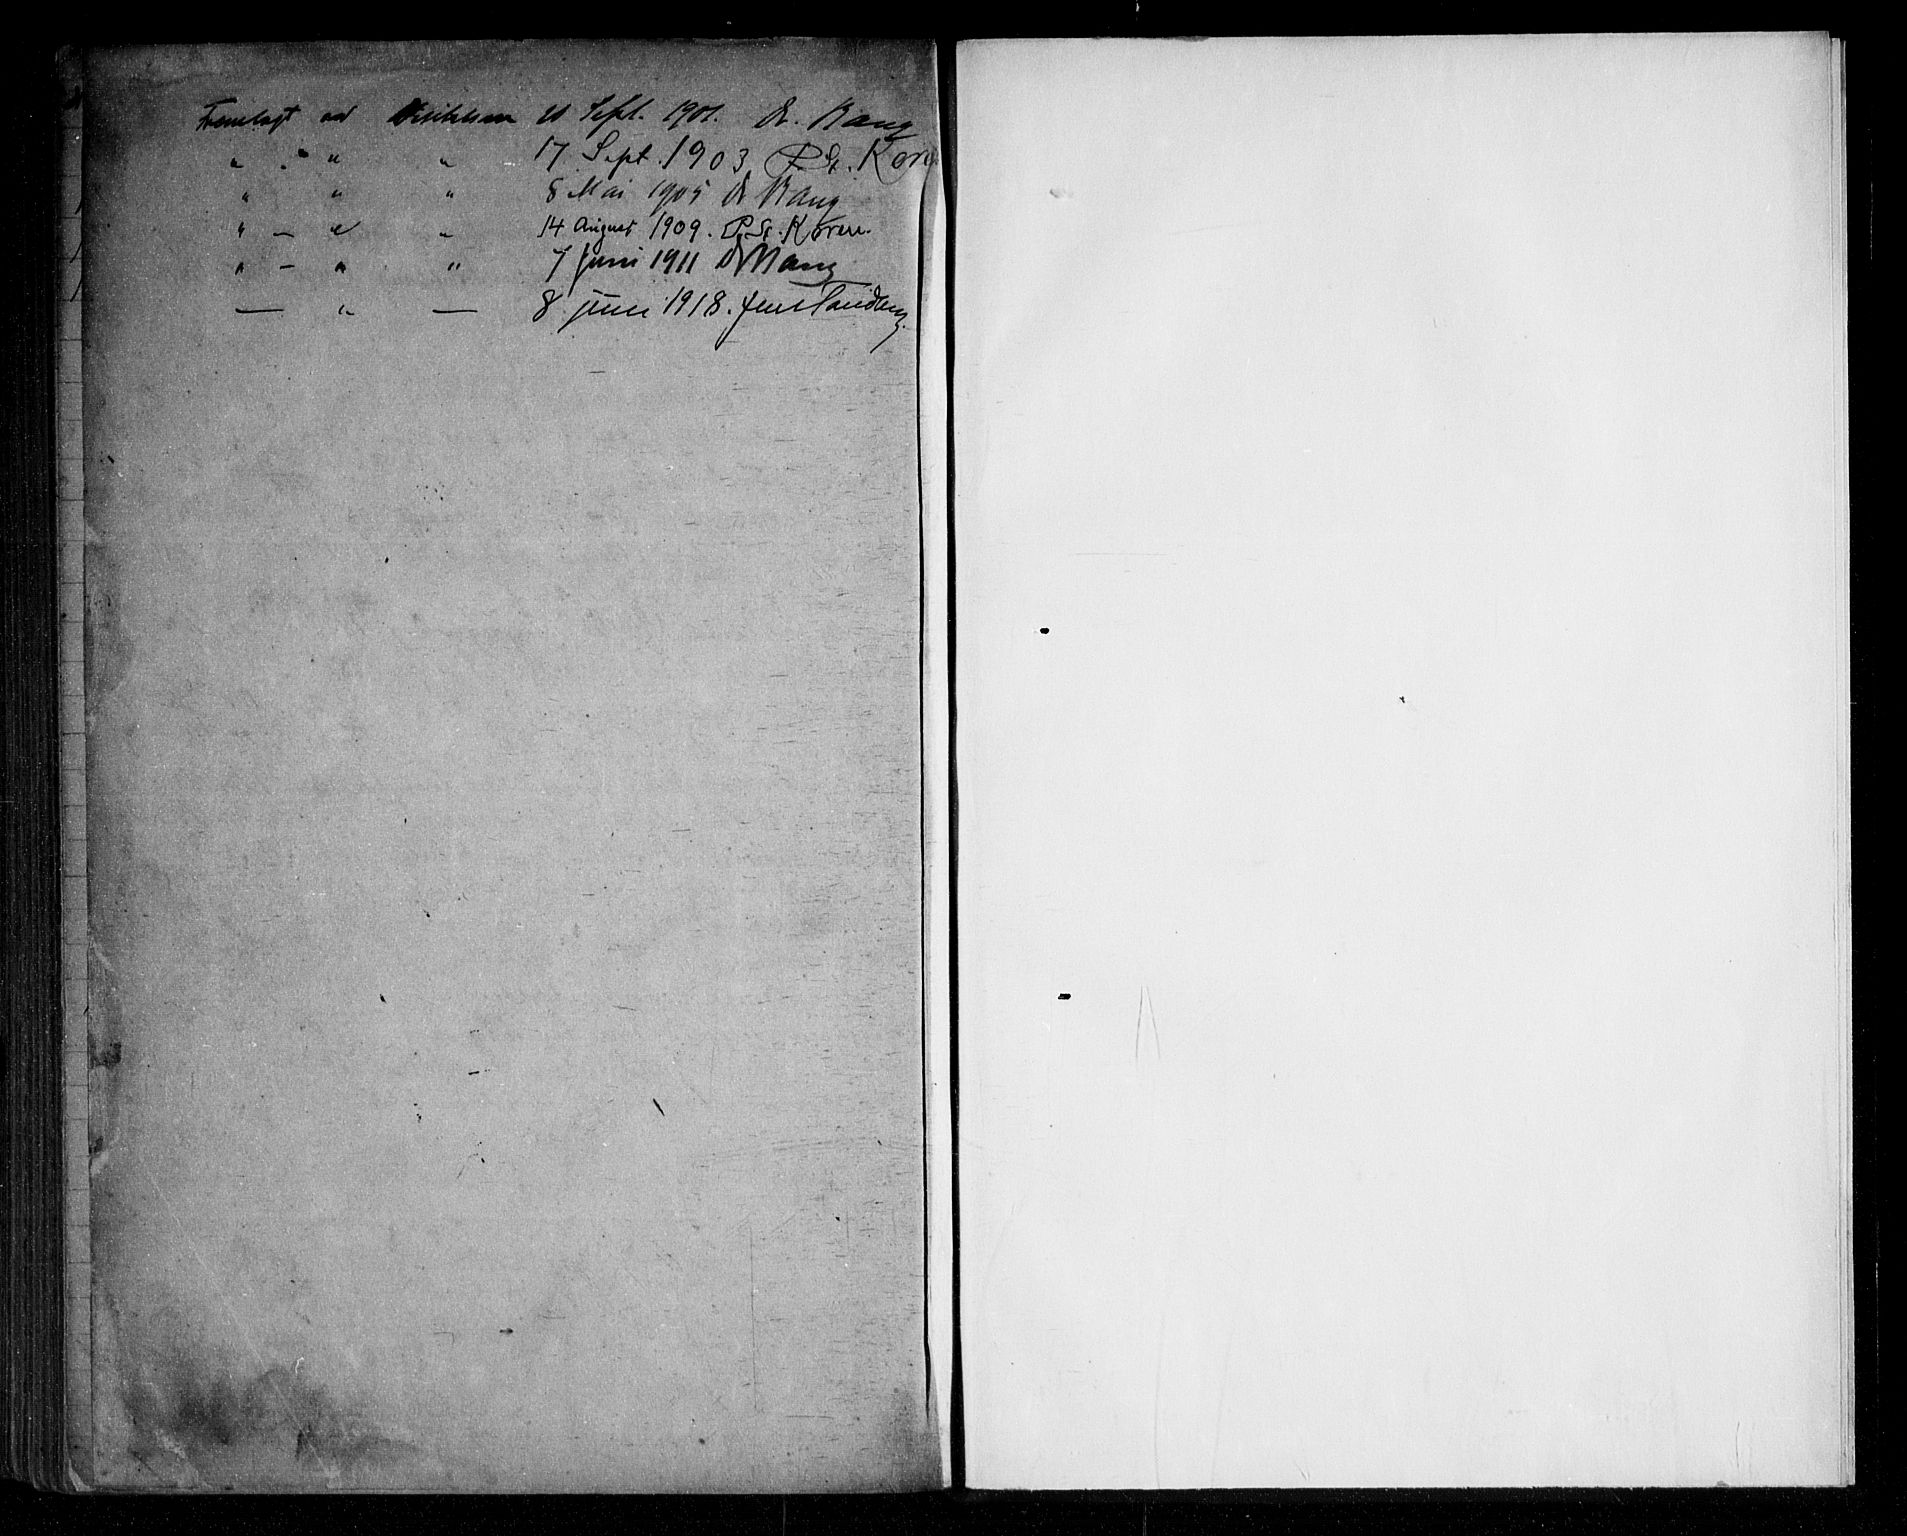 Fremlagt ved Visitatsen 21 Sept. 1901. A. Bang
" . " " " 17 Sept. 1903 P. St. Koren
" " " 8 Mai 1905 A Bang
" — " " 14 August 1909. P. St. Koren.
" — " " 7 Juni 1911 A Bang
— " — 8 juni 1918. Jens Tandberg.